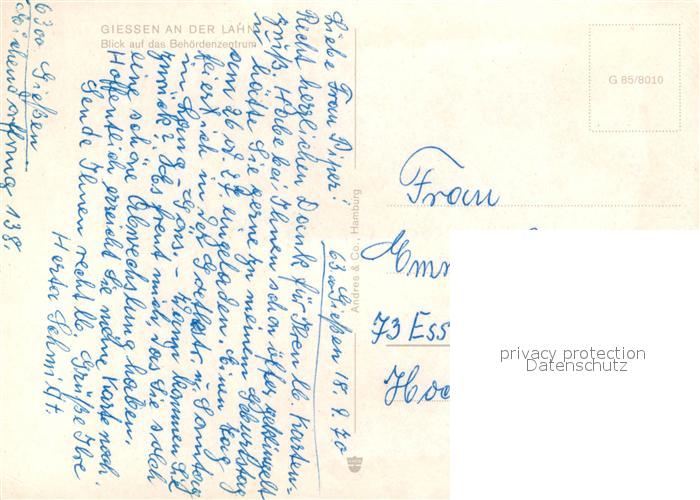 GIESSEN AN DER LAHN
Blick auf das Behördenzentrum
G 85/8010
Andres & Co., Hamburg
63 Gießen 18.9.70
Liebe Frau Piper!
Recht herzlichen Dank für Ihren lb. Karten-
gruß. Habe bei Ihnen schon öfter geklingelt
hätte Sie gerne zu meinem Geburtstag
am 26 od. 27 eingeladen. Einen Tag
feier ich in der
in Lang-Göns. - Wann kommen Sie
zurück? Es freut mich, das Sie solch
eine schöne Abwechslung haben.
Hoffentlich erreicht Sie meine Karte noch.
Sende Ihnen recht lb. Grüße Ihre
Herta Schmidt.
6300 Gießen
138.
Frau
Emm
73 Ess
Hoc
privacy protection
Datenschutz